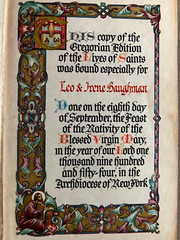 This copy of the
Gregorian Edition
of the Lives of Saints
was bound especially for
Leo & Irene Baughman
Done on the eighth day
of September, the Feast
of the Nativity of the
Blessed Virgin Mary,
in the year of our Lord one
thousand nine hundred
and fifty-four, in the
Archdiocese of New York